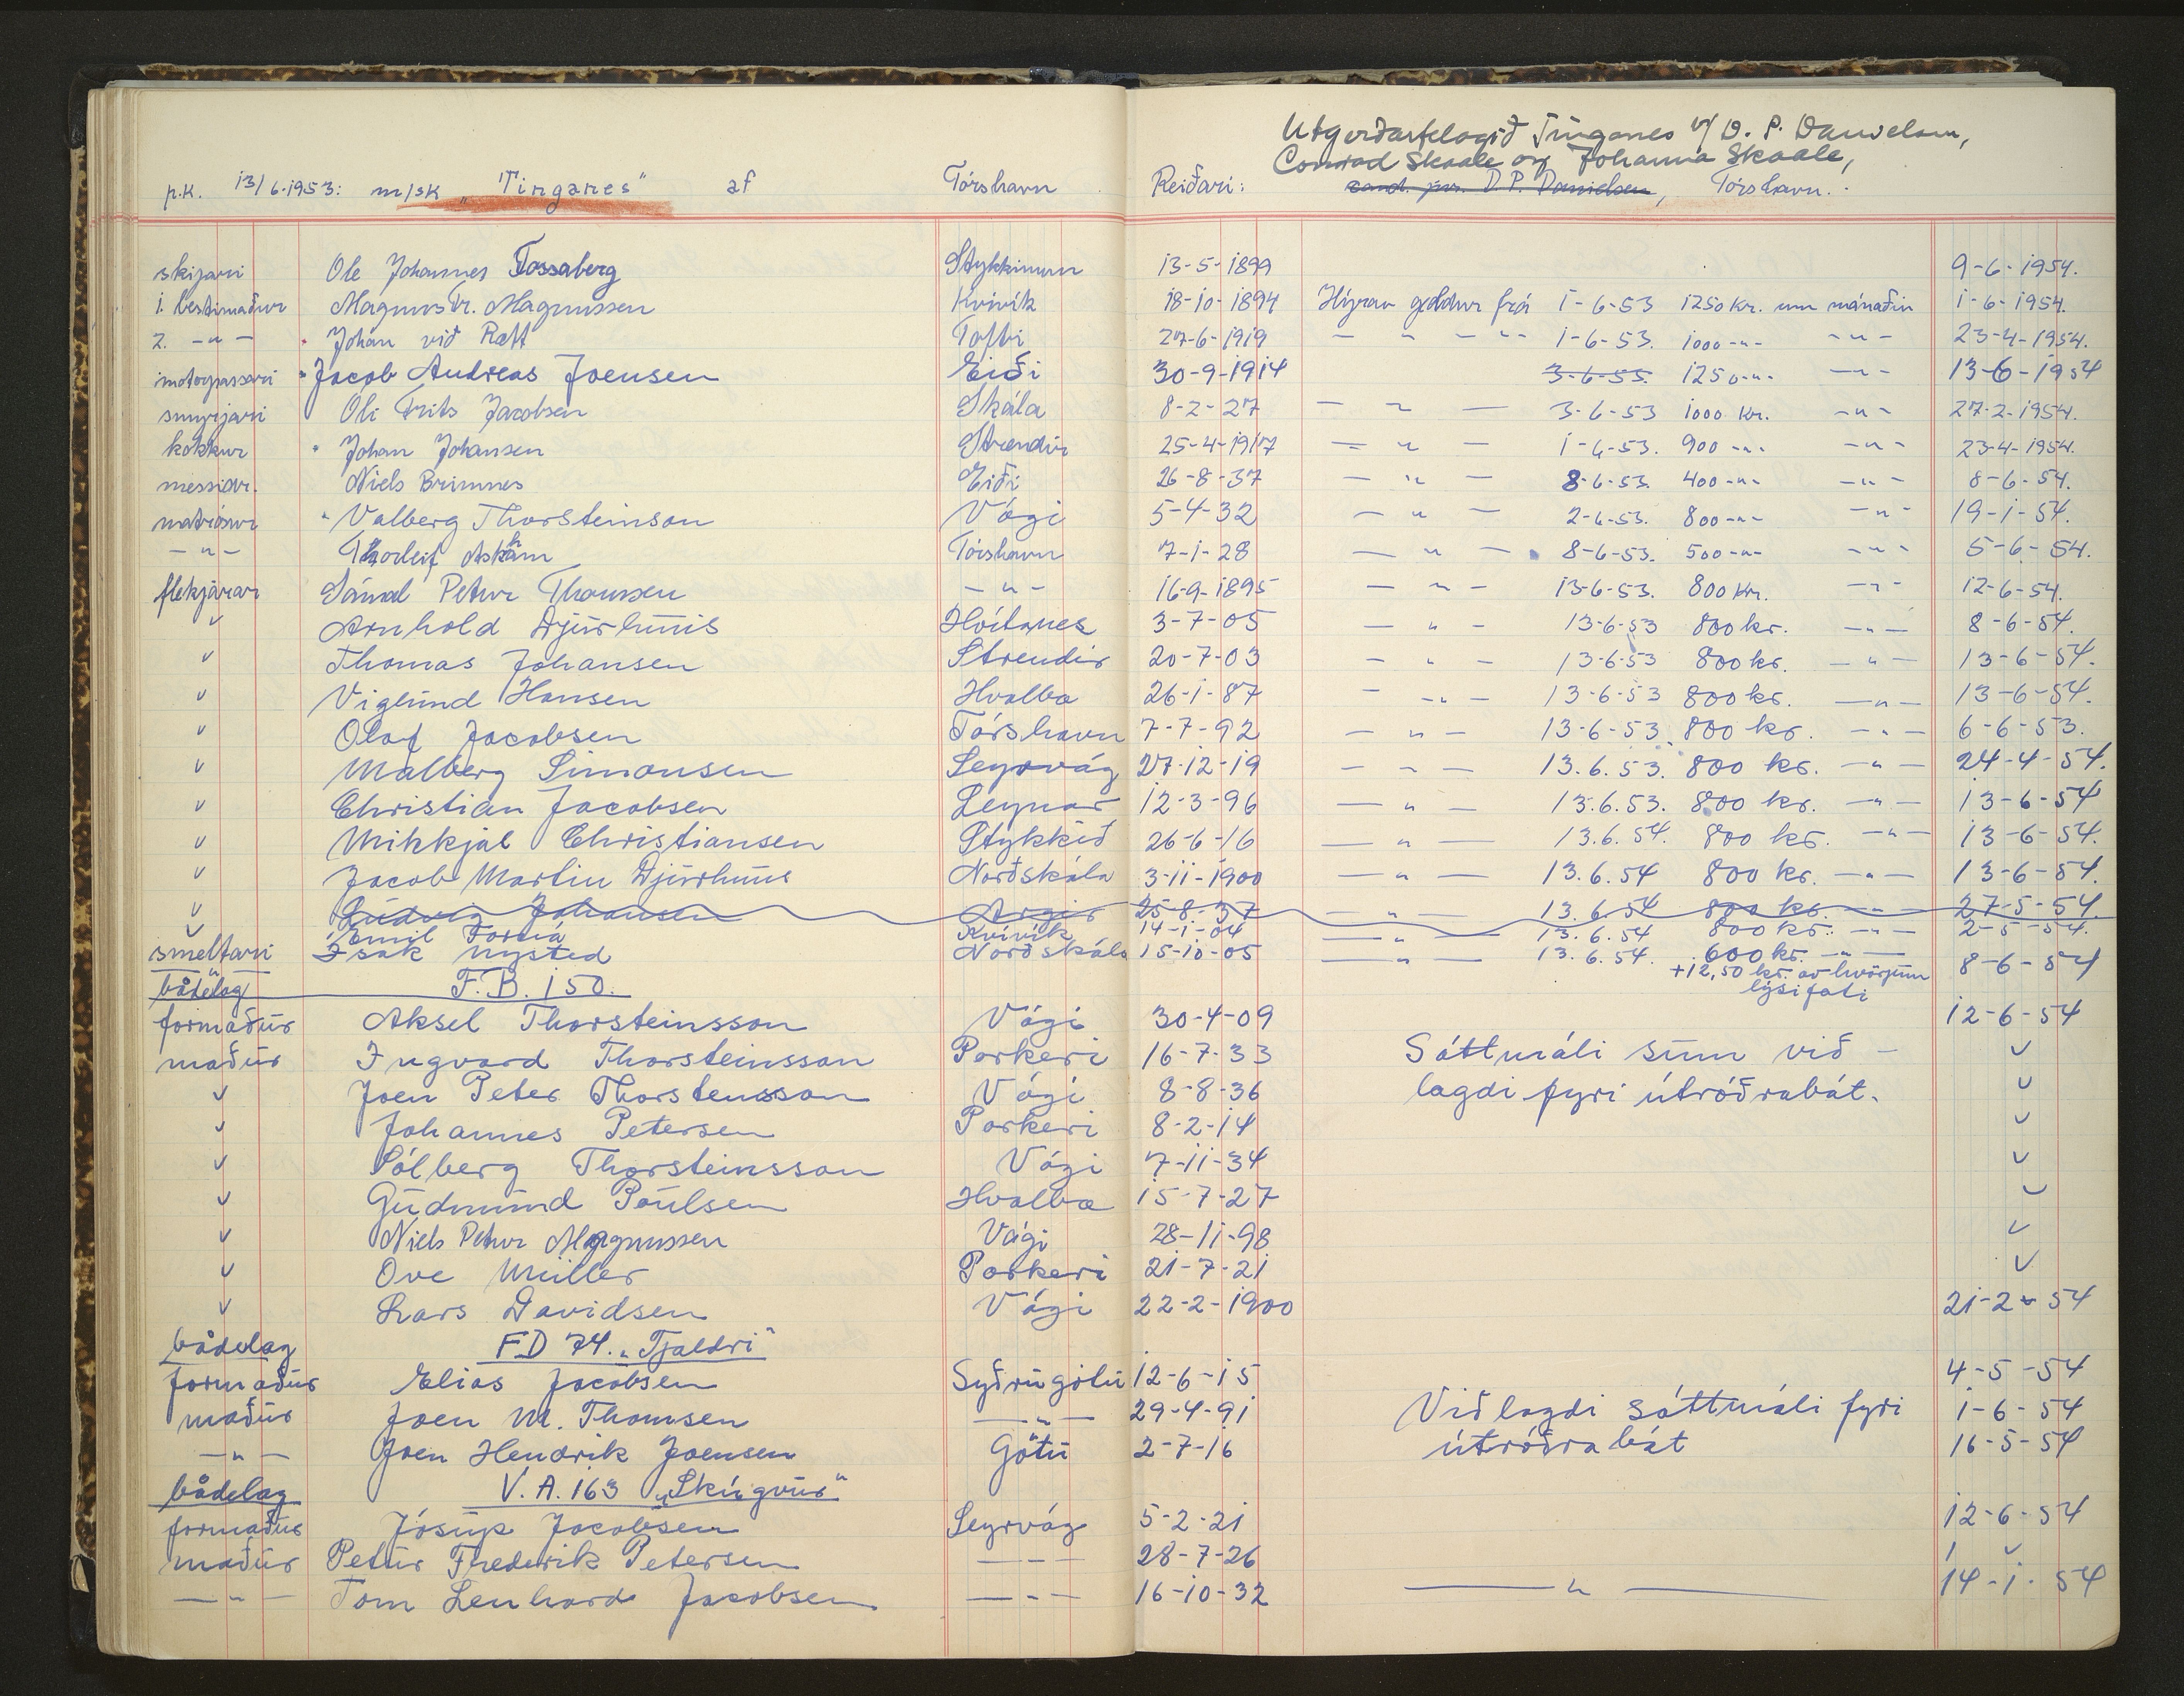 Utgerðarfelagið Tinganes v/ D. P. Danielsen,
Conrad Skaale og Johanna Skaale,
p.k. 13/6.1953: m/sk „Tinganes" af Tórshavn Reiðari: cand. jur. D. P. Danielsen, Tórshavn.
skipari Ole Johannes Fossaberg Stykkinum 13-5-1899 9-6-1954.
1. bestimaður Magnus Fr. Magnussen Kvívík 18-10-1894 Hýran geldur frá 1-6-53 1250 kr. um mánaðin 1-6-1954.
2. -"- Johan við Rætt Toftir 27-6-1919 - " - "- 1-6-53. 1000 -"- -"- 23-4-1954.
motorpassari Jacob Andreas Joensen Eiði 30-9-1914 3-6-53. 1250 -"- -"- 13-6-1954
smyrjari Oli Frits Jacobsen Skála 8-2-27 - " - 3-6-53 1000 kr. -"- 27-2-1954.
kokkur Johan Johansen Strendir 25-4-1917 - " - 1-6-53. 900 -"- -"- 23-4-1954.
messidr. Niels Brimnes Eiði 26-8-37 - " - 8-6-53. 400 -"- -"- 8-6-54.
matrósur Valberg Thorsteinson Vági 5-4-32 - " - 2-6-53. 800 -"- -"- 19-1-54.
-"- Thorleif Askham Tórshavn 7-1-28 - " - 8-6-53. 500 -"- -"- 5-6-54.
flekjarar Sámal Petur Thomsen -"- 16-9-1895 - " - 13-6-53. 800 kr. -"- 12-6-54.
v Arnhold Djurhuus Hvítanes 3-7-05 - " - 13-6-53 800 kr. -"- 8-6-54.
v Thomas Johansen Strendir 20-7-03 - " - 13-6-53 800 kr. -"- 13-6-54.
v Viglund Hansen Hvalba 26-1-87 - -"- 13-6-53 800 kr. -"- 13-6-54.
v Olaf Jacobsen Tórshavn 7-7-92 - " - 13-6-53. 800 kr. -"- 6-6-53.
v Malberg Simonsen Seyrvág 27-12-19 - " - 13.6.53. 800 kr. -"- 24-4-54.
v Christian Jacobsen Leynar 12-3-96 - " - 13.6.53. 800 kr. -"- 13-6-54
v Mikkjal Christiansen Stykkið 26-6-16 - " - 13.6.54. 800 kr. -"- 13-6-54.
v Jacob Martin Djurhuus Norðskála 3-11-1900 - " - 13.6.54 800 kr. -"- 13-6-54.
v Ludvig Johansen Argir 25-8-37 - " - 13.6.54 800 kr. -"- 27-5-54.
v Emil Formá Kvívík 14-1-04 - " - 13.6.54 800 kr. -"- 2-5-54.
smeltari Isak Nysted Norðskála 15-10-05 - " - 13.6.54. 600 kr. -"- 8-6-54
+12,50 kr. av hvørjum
lýsifati
bådelag F.B. 150.
formaður Aksel Thorsteinsson Vági 30-4-09 12-6-54
maður Ingvard Thorsteinsson Porkeri 16-7-33 Sáttmáli sum við - v
v Joen Peter Thorsteinsson Vági 8-8-36 lagdi fyri útróðrabát. v
v Johannes Petersen Porkeri 8-2-14 v
v Sólberg Thorsteinsson Vági 7-11-34 v
v Gudmund Poulsen Hvalba 15-7-27 v
v Niels Petur Magnussen Vági 28-11-98 v
v Ove Müller Porkeri 21-7-21 v
v Lars Davidsen Vági 22-2-1900 21-2-54
bådelag FD 74. „Tjaldri"
formaður Elias Jacobsen Syðrugøtu 12-6-15 4-5-54
maður Joen M. Thomsen -"- 29-4-91 Viðlagdi sáttmáli fyri 1-6-54
-"- Joen Hendrik Joensen Gøtu 2-7-16 útróðrabát 16-5-54
bådelag V.A. 163 „Skúgvur"
formaður Jósup Jacobsen Seyrvág 5-2-21 12-6-54
maður Petur Frederik Petersen --- 28-7-26 v
-"- Tom Lenhard Jacobsen --- 16-10-32 - " - 14-1-54